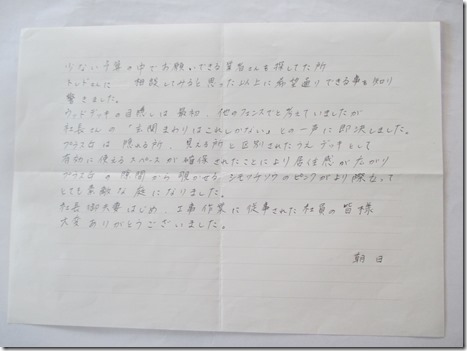 少ない予算の中でお願いできる業者さんを探してた所
さんに 相談してみると思った以上に希望通りできる事を知り
驚きました。
ウッドデッキの目隠しは最初、他のフェンスでと考えていましたが
社長さんの "玄関まわりはこれしかない" との一声に即決しました。
は隠れる所、見える所と区別されたうえ デッキとして
有効に使えるスペースが確保されたことにより居住感が広がり
の隙間から覗かせる のピンクがより際立って
とても素敵な庭になりました。
社長御夫妻はじめ、工事作業に従事された社員の皆様
大変ありがとうございました。
朝日